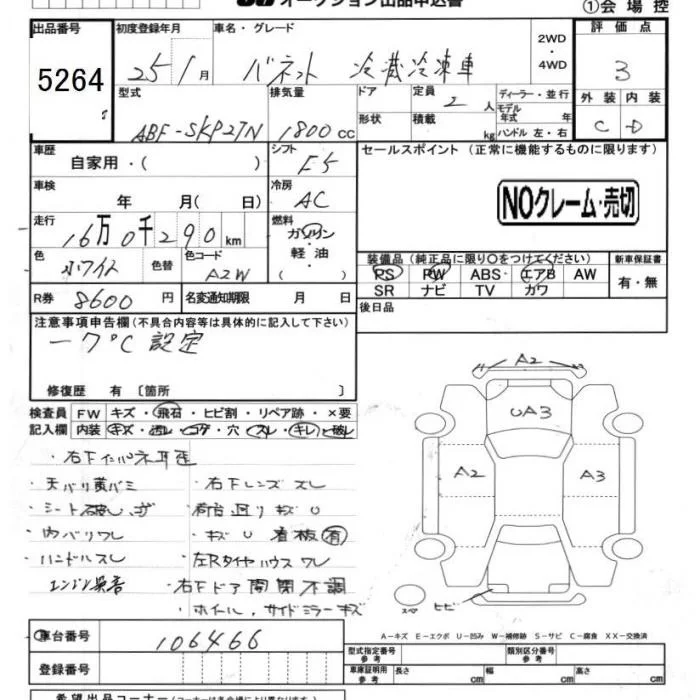 オークション出品申込書
①会場控
出品番号
初度登録年月
車名・グレード
2WD
・
4WD
評価点
5264
25年1月
バネット 冷蔵冷凍車
3
型式
排気量
ドア
定員
ディーラー・並行
外装 内装
2人
モデル年式 年
ABF-SKP27N
1800cc
形状
積載 kg
ハンドル 左・右
C D
車歴
シフト
セールスポイント (正常に機能するものに限ります)
自家用・( )
F5
車検
冷房
NOクレーム・売切
年 月( 日)
AC
走行
燃料
16万0千290km
ガソリン
軽油
装備品 (純正品に限り○をつけてください)
新車保証書
色
色替
色コード
ホワイト
A2W
PS PW ABS エアB AW
有・無
SR ナビ TV カワ
R券 8600円
名変通知期限 月 日
後日品
注意事項申告欄 (不具合内容等は具体的に記入して下さい)
-7℃設定
修復歴 有 〔箇所 〕
検査員
FW
キズ・飛石・ヒビ割・リペア跡・×要
記入欄
内装
キズ・汚レ・コゲ・穴・スレ・キレ・破レ
A2
UA3
A2
A3
・天バリ黄バミ
・右下レンズスレ
・シート破レ
・荷台廻りキズU
・内バリワレ
・キズU 看板有
・ハンドルスレ
・左Rタイヤハウスワレ
エンジン異音
・右下ドア開閉不調
・ホイール、サイドミラーキズ
スペ
ヒビ
A-キズ E-エクボ U-凹み W-補修跡 S-サビ C-腐食 XX-交換済
車台番号
106466
型式指定番号
参考
類別区分番号
参考
登録番号
車庫証明用
参考
長さ cm
幅 cm
高さ cm
希望出品コーナー